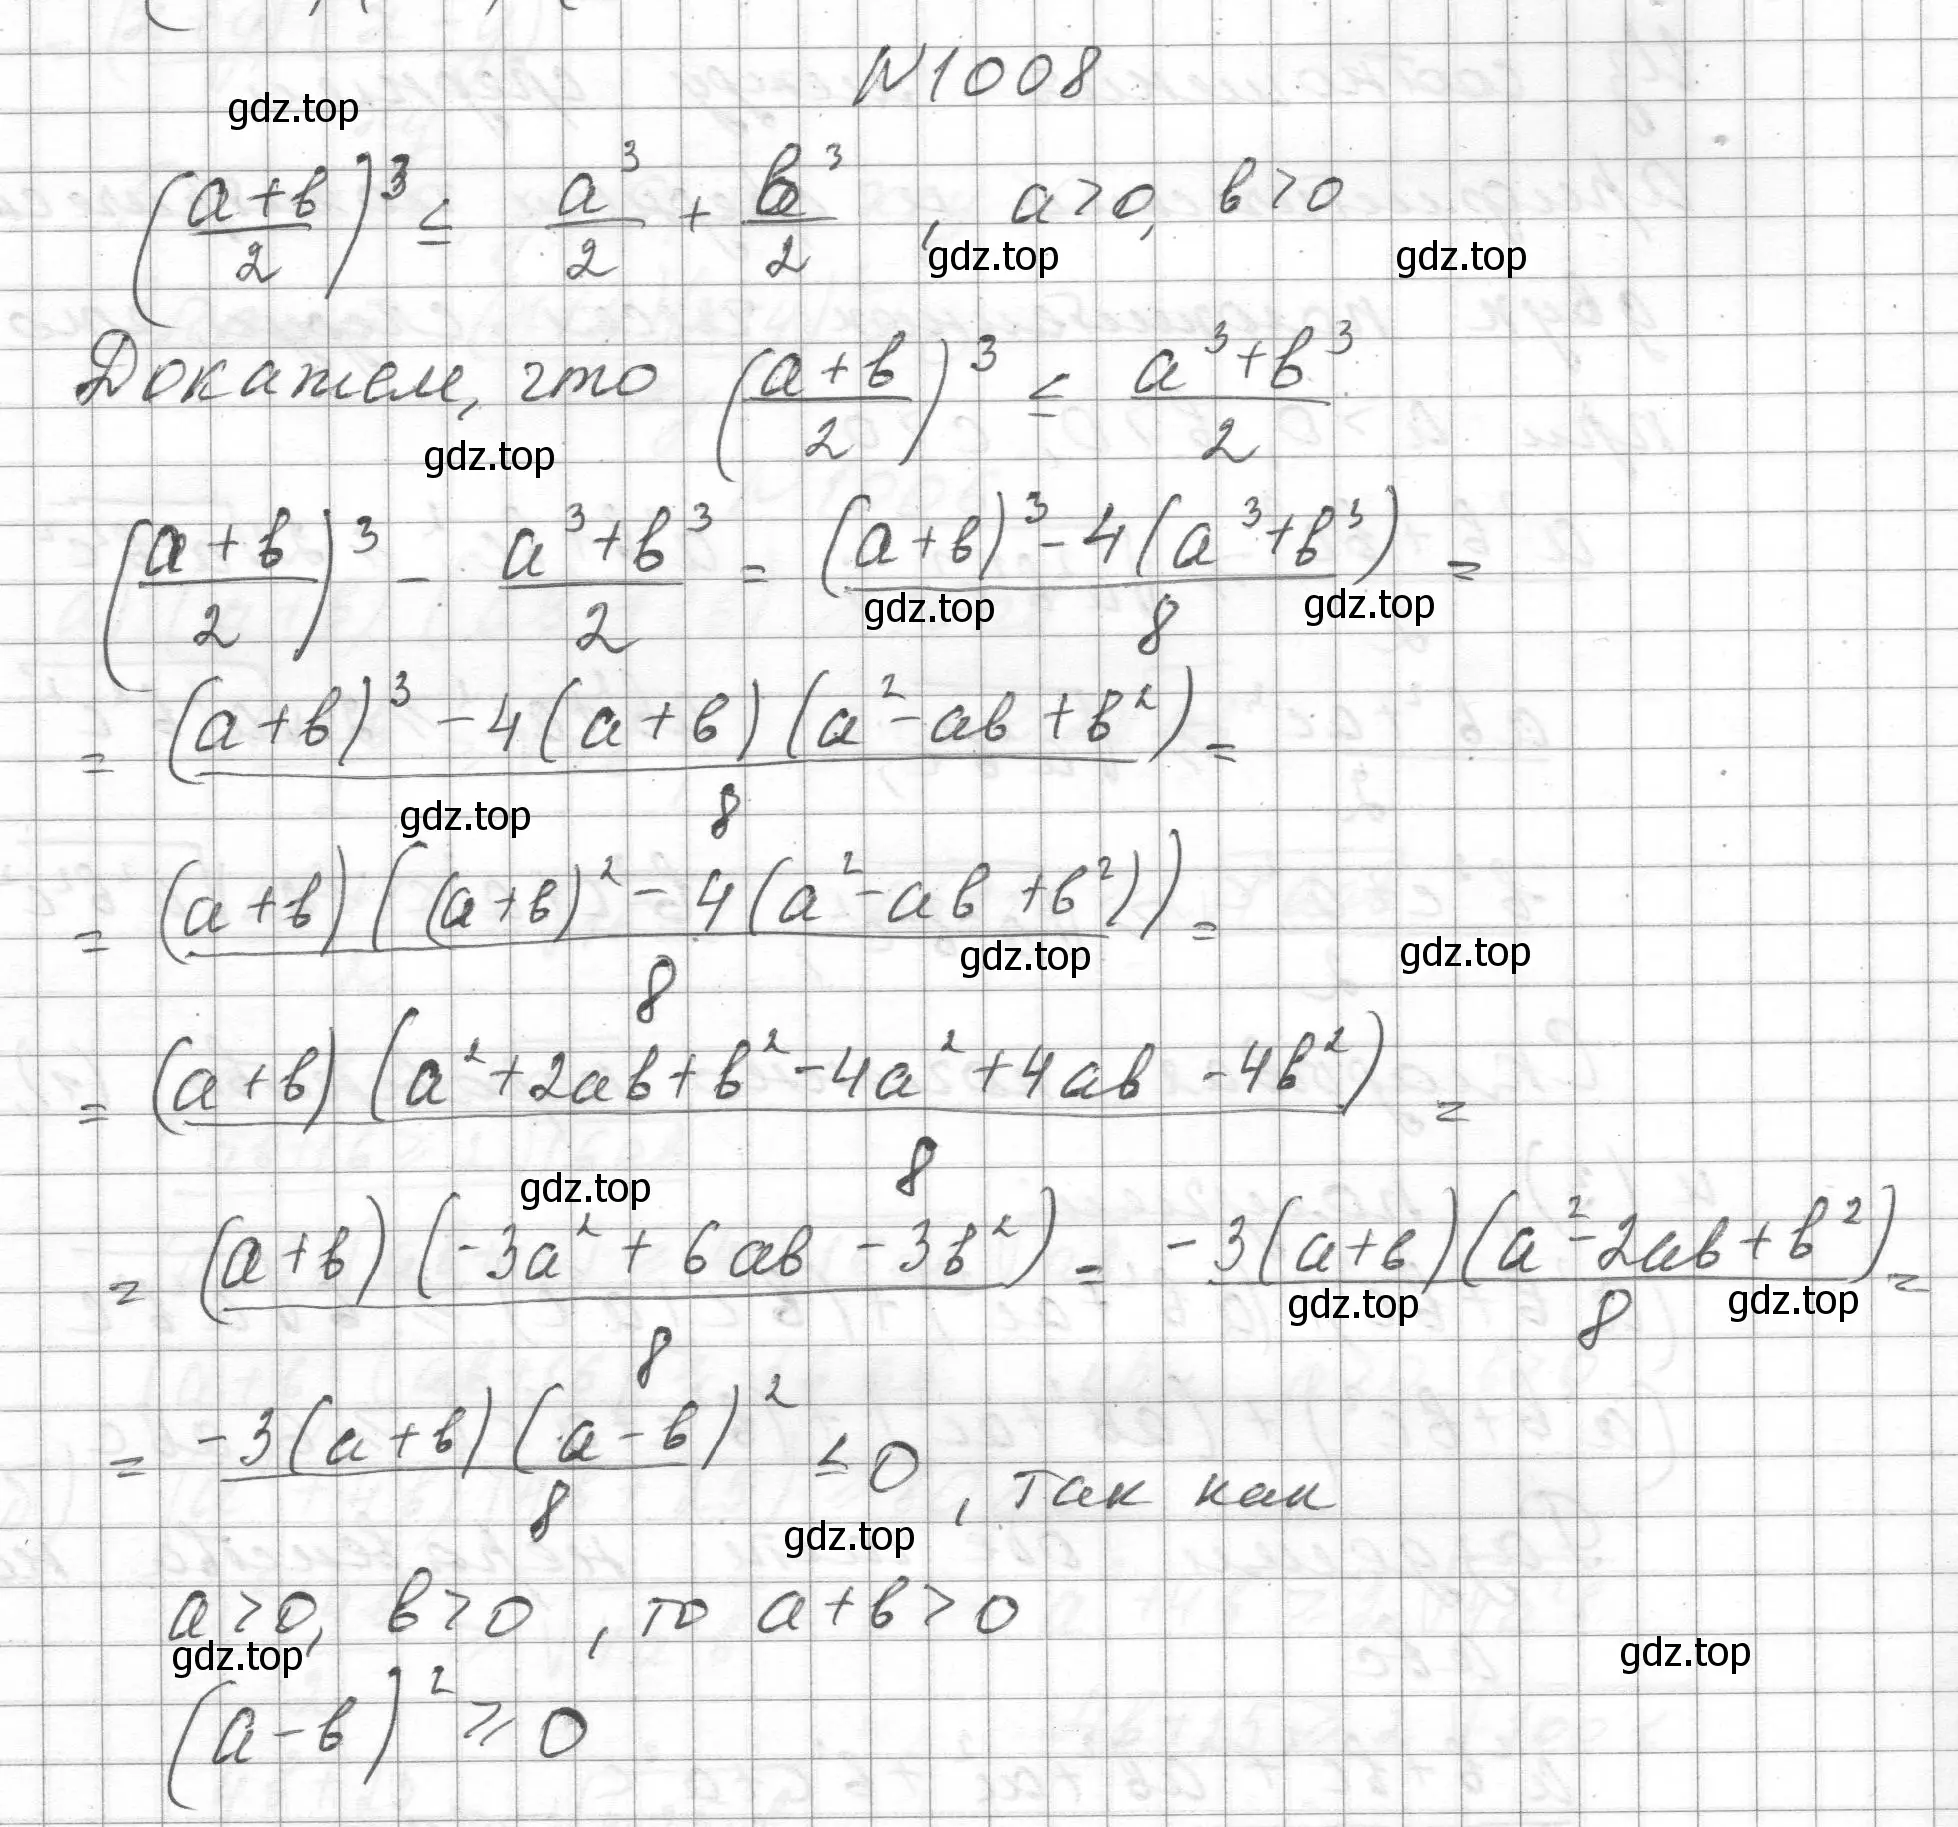 N1008
gdz.top
((a+b)/2)³ ≤ a³/2 + b³/2, a>0, b>0
gdz.top gdz.top
Докажем, что ((a+b)/2)³ ≤ (a³+b³)/2
gdz.top
((a+b)/2)³ - (a³+b³)/2 = ((a+b)³-4(a³+b³))/8 =
gdz.top gdz.top
= ((a+b)³-4(a+b)(a²-ab+b²))/8 =
gdz.top
= ((a+b)((a+b)²-4(a²-ab+b²)))/8 =
gdz.top gdz.top
= ((a+b)(a²+2ab+b²-4a²+4ab-4b²))/8 =
gdz.top
= ((a+b)(-3a²+6ab-3b²))/8 = (-3(a+b)(a²-2ab+b²))/8 =
gdz.top gdz.top
= (-3(a+b)(a-b)²)/8 ≤ 0, так как
gdz.top
a>0, b>0, то a+b>0
gdz.top gdz.top
(a-b)² ≥ 0